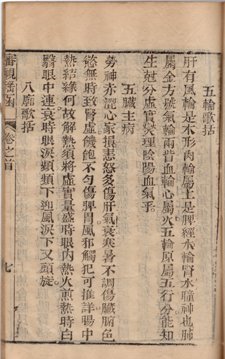 五輪歌括
肝有風輪是木形肉輪屬土是脾經水輪腎水瞳神也肺
屬金方號氣輪兩眥血輪心屬火五輪原屬五行分能知
生尅分虛實究理陰陽血氣乎
五臟主病
勞神亦認心家損悲怒多傷肝氣衰寒暑不調傷臟腑色
慾無時致腎虛饑飽不勻傷脾胃風邪觸犯可推詳腸中
熱結緣何故解熱須將虛實量盛時眼內熱火煎熱時白
翳眼中連衰時眼淚頻頻下迎風淚下又頭旋
八廓歌括
審視瑤函
卷之首
七